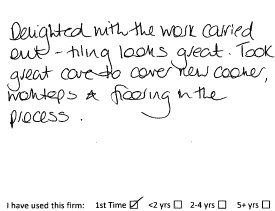 Delighted with the work carried
out - tiling looks great. Took
great care to cover new cooker,
worktops & flooring in the
process.
I have used this firm: 1st Time ☑ <2 yrs ☐ 2-4 yrs ☐ 5+ yrs ☐